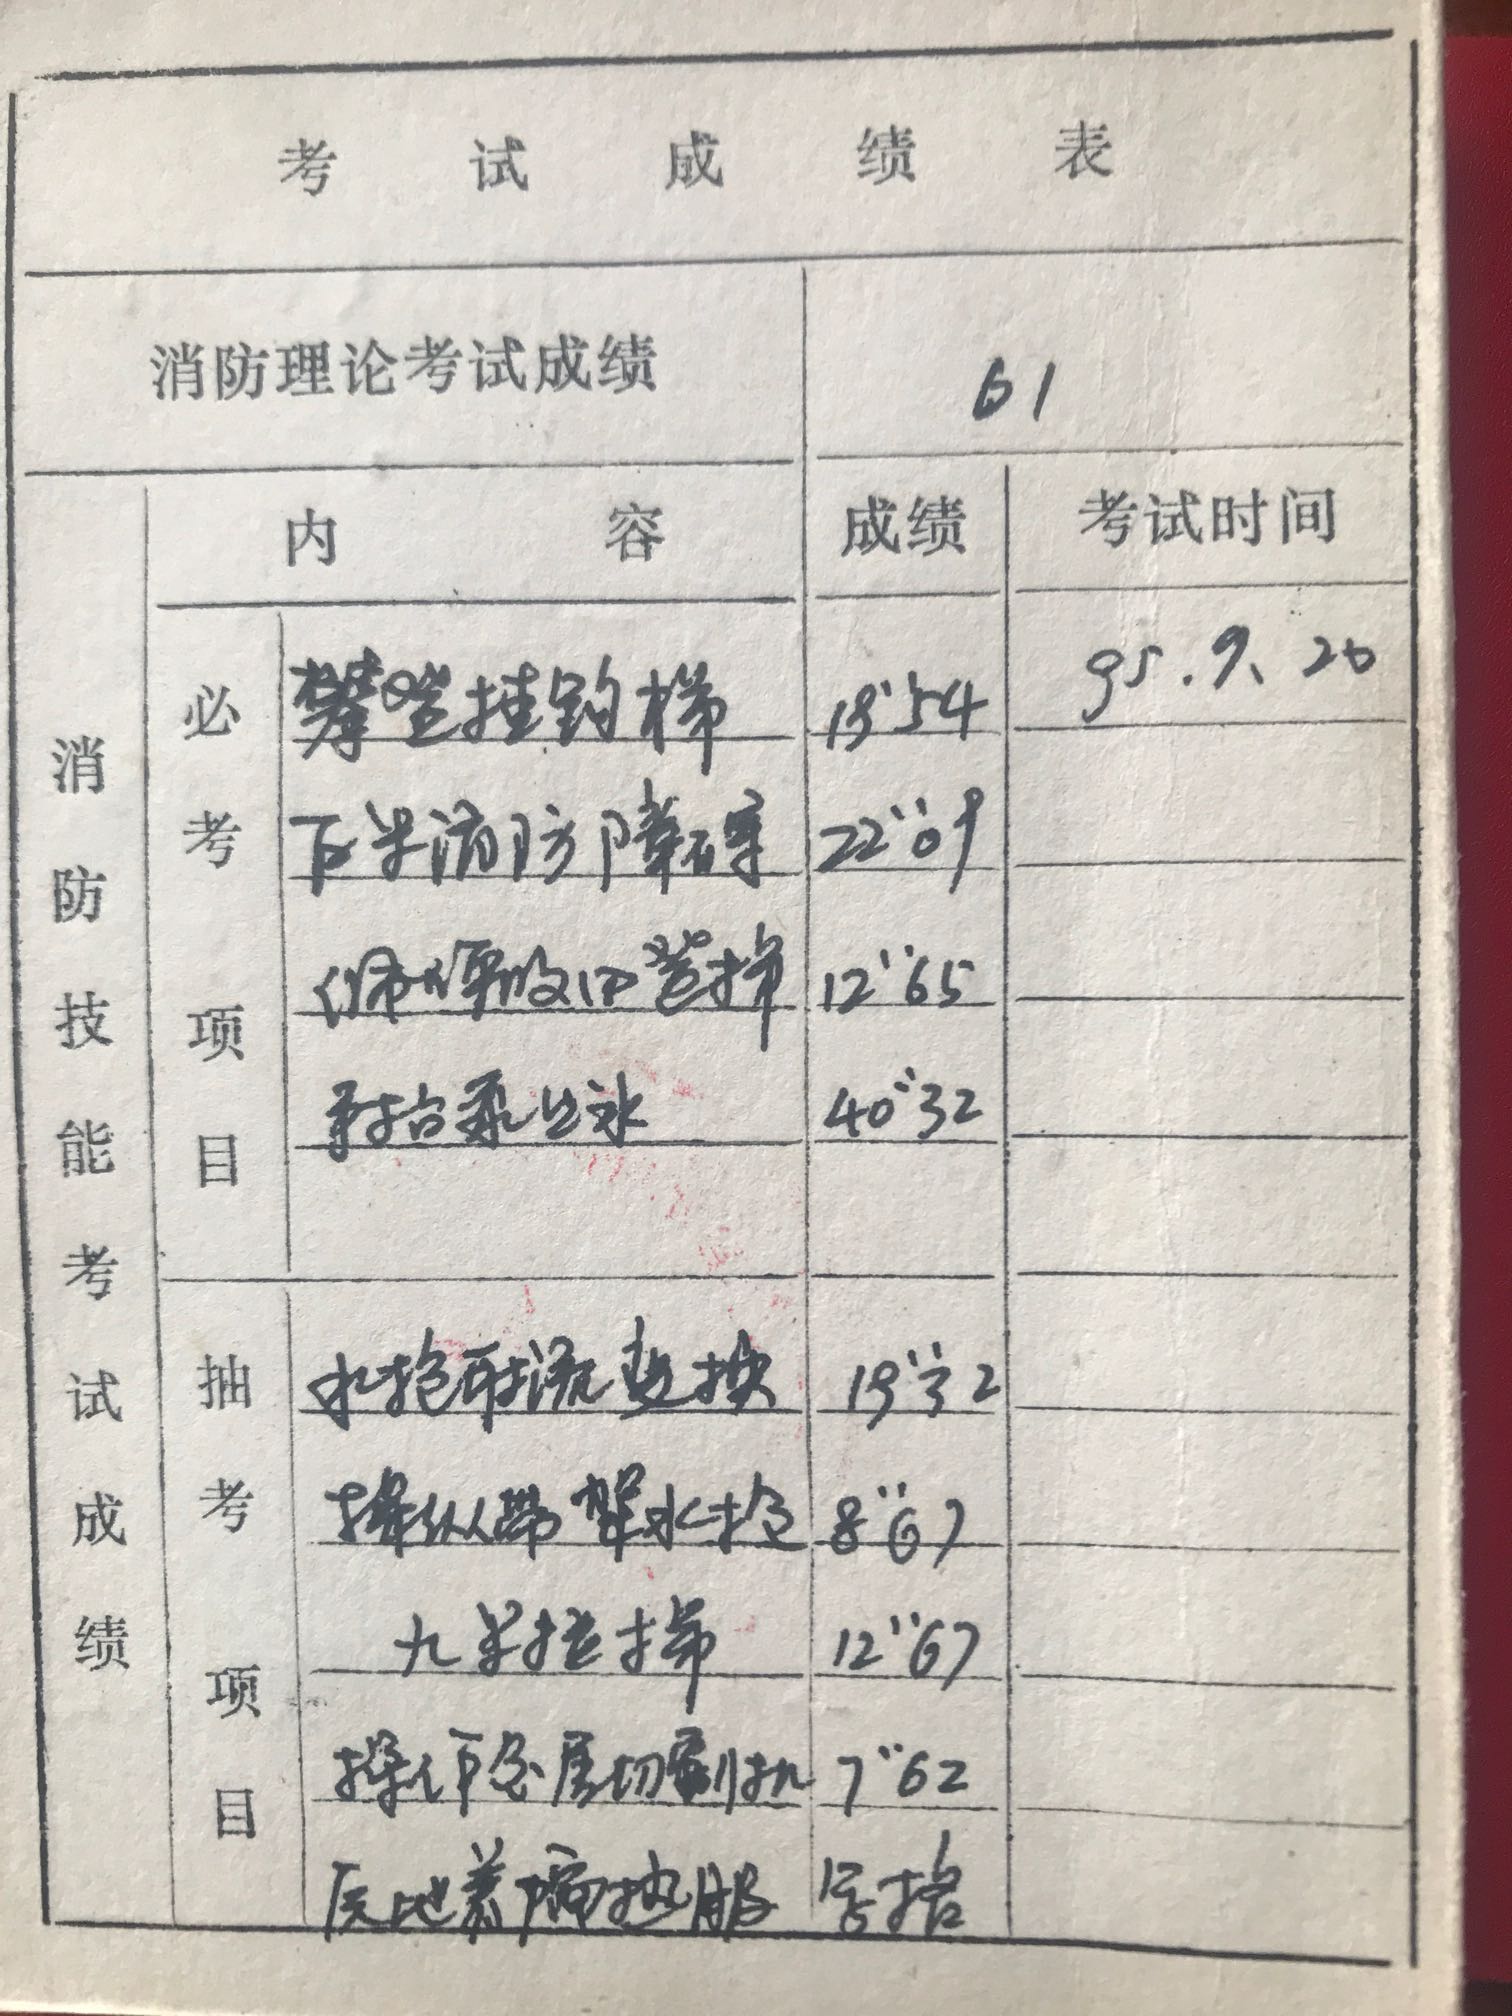 考试成绩表
消防理论考试成绩 61
消防技能考试成绩
内容 成绩 考试时间
必考项目
攀登挂钩梯 18"54 95.9.20
百米消防障碍 22"09
12"65
手抬泵出水 40"32
抽考项目
水枪射流变换 19"32
操纵带架水枪 8"67
九米拉梯 12"67
操作金属切割机 7"62
原地着隔热服